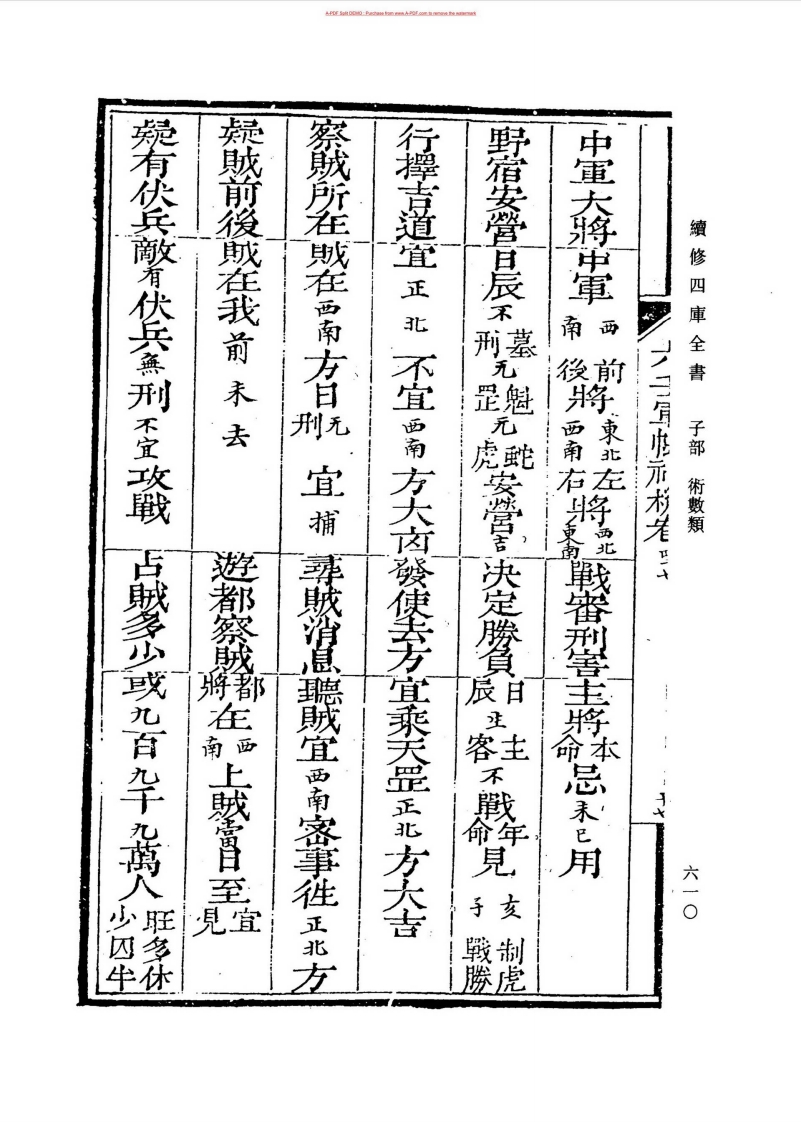 A-PDF Split DEMO : Purchase from www.A-PDF.com to remove the watermark
續修四庫全書 子部 術數類
六一〇
中軍大將中軍西南前將東北後將西南左將西北右將東南戰審刑害主將本命忌未巳用
野宿安營日辰不墓刑无魁罡无蛇虎安營吉決定勝負日辰正主客不戰年命見亥子制虎戰勝
行擇吉道宜正北不宜西南方大凶發使去方宜乘天罡正北方大吉
察賊所在賊在西南方日无刑宜捕尋賊消息聽賊宜西南密事徃正北方
疑賊前後賊在我前未去遊都察賊都將在西南上賊當日至宜見
疑有伏兵敵有伏兵無刑不宜攻戰占賊多少或九百九千九萬人旺多休少囚半